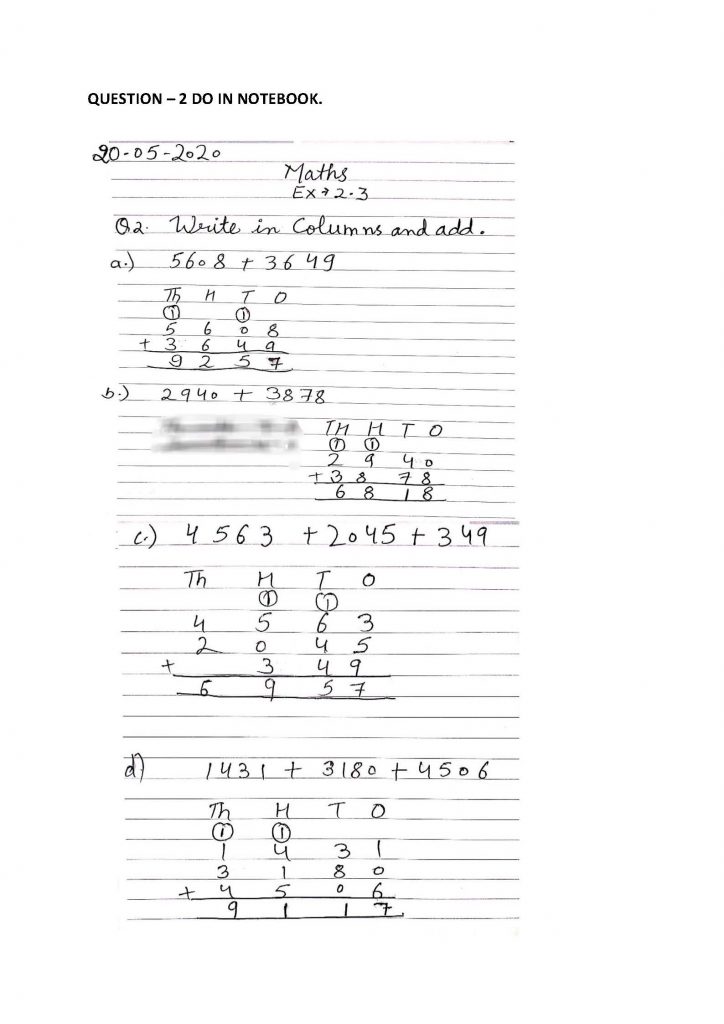 QUESTION – 2 DO IN NOTEBOOK.
20-05-2020
Maths
Ex → 2.3
Q2. Write in Columns and add.
a.) 5608 + 3649
Th H T O
① ①
5 6 0 8
+ 3 6 4 9
9 2 5 7
b.) 2940 + 3878
TH H T O
① ①
2 9 4 0
+ 3 8 7 8
6 8 1 8
c.) 4563 + 2045 + 349
Th H T O
① ①
4 5 6 3
2 0 4 5
+ 3 4 9
6 9 5 7
d) 1431 + 3180 + 4506
Th H T O
① ①
1 4 3 1
3 1 8 0
+ 4 5 0 6
9 1 1 7